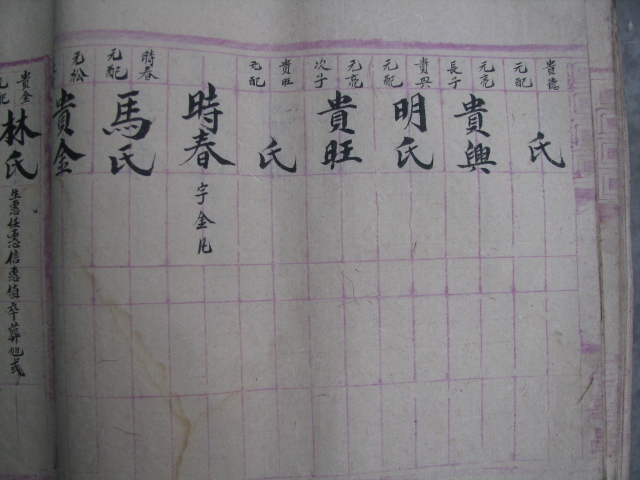 貴德
元配
氏
元亮
長子
貴興
貴興
元配
明氏
元亮
次子
貴旺
貴旺
元配
氏
時春
字金凡
時春
元配
馬氏
元松
貴金
貴金
元配
林氏
生惠任惠信惠值卒葬旭